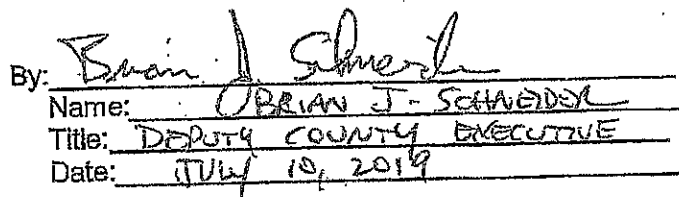 By: Brian J. Schneider
Name: BRIAN J. SCHNEIDER
Title: DEPUTY COUNTY EXECUTIVE
Date: JULY 10, 2019